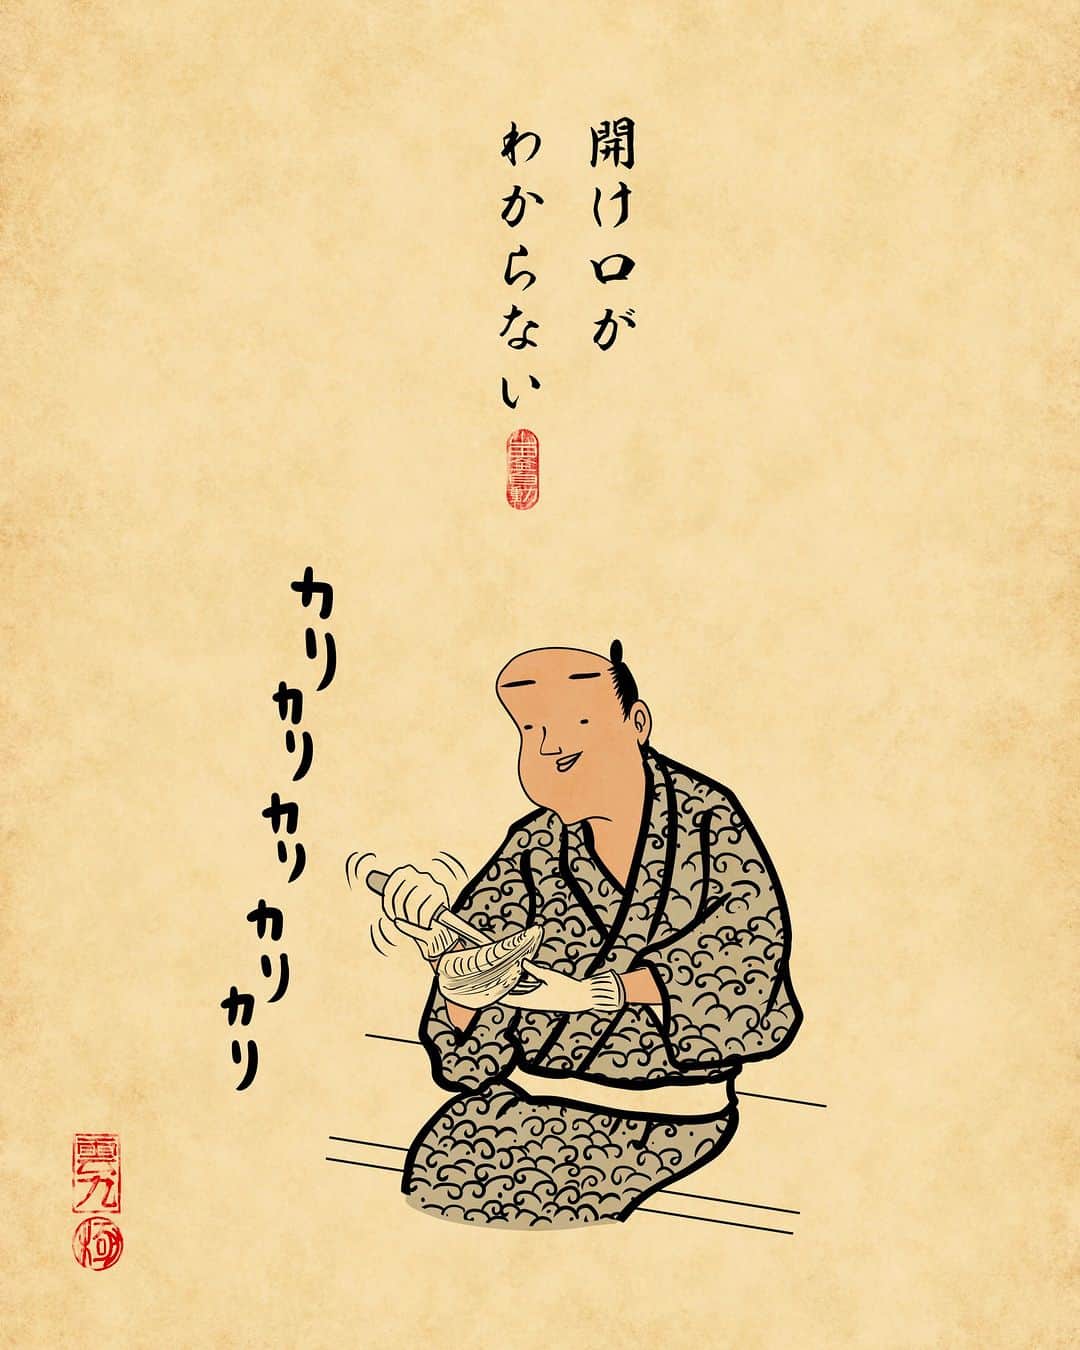 開け口が
わからない
カリ
カリ
カリ
カリ
カリ
雲九
極